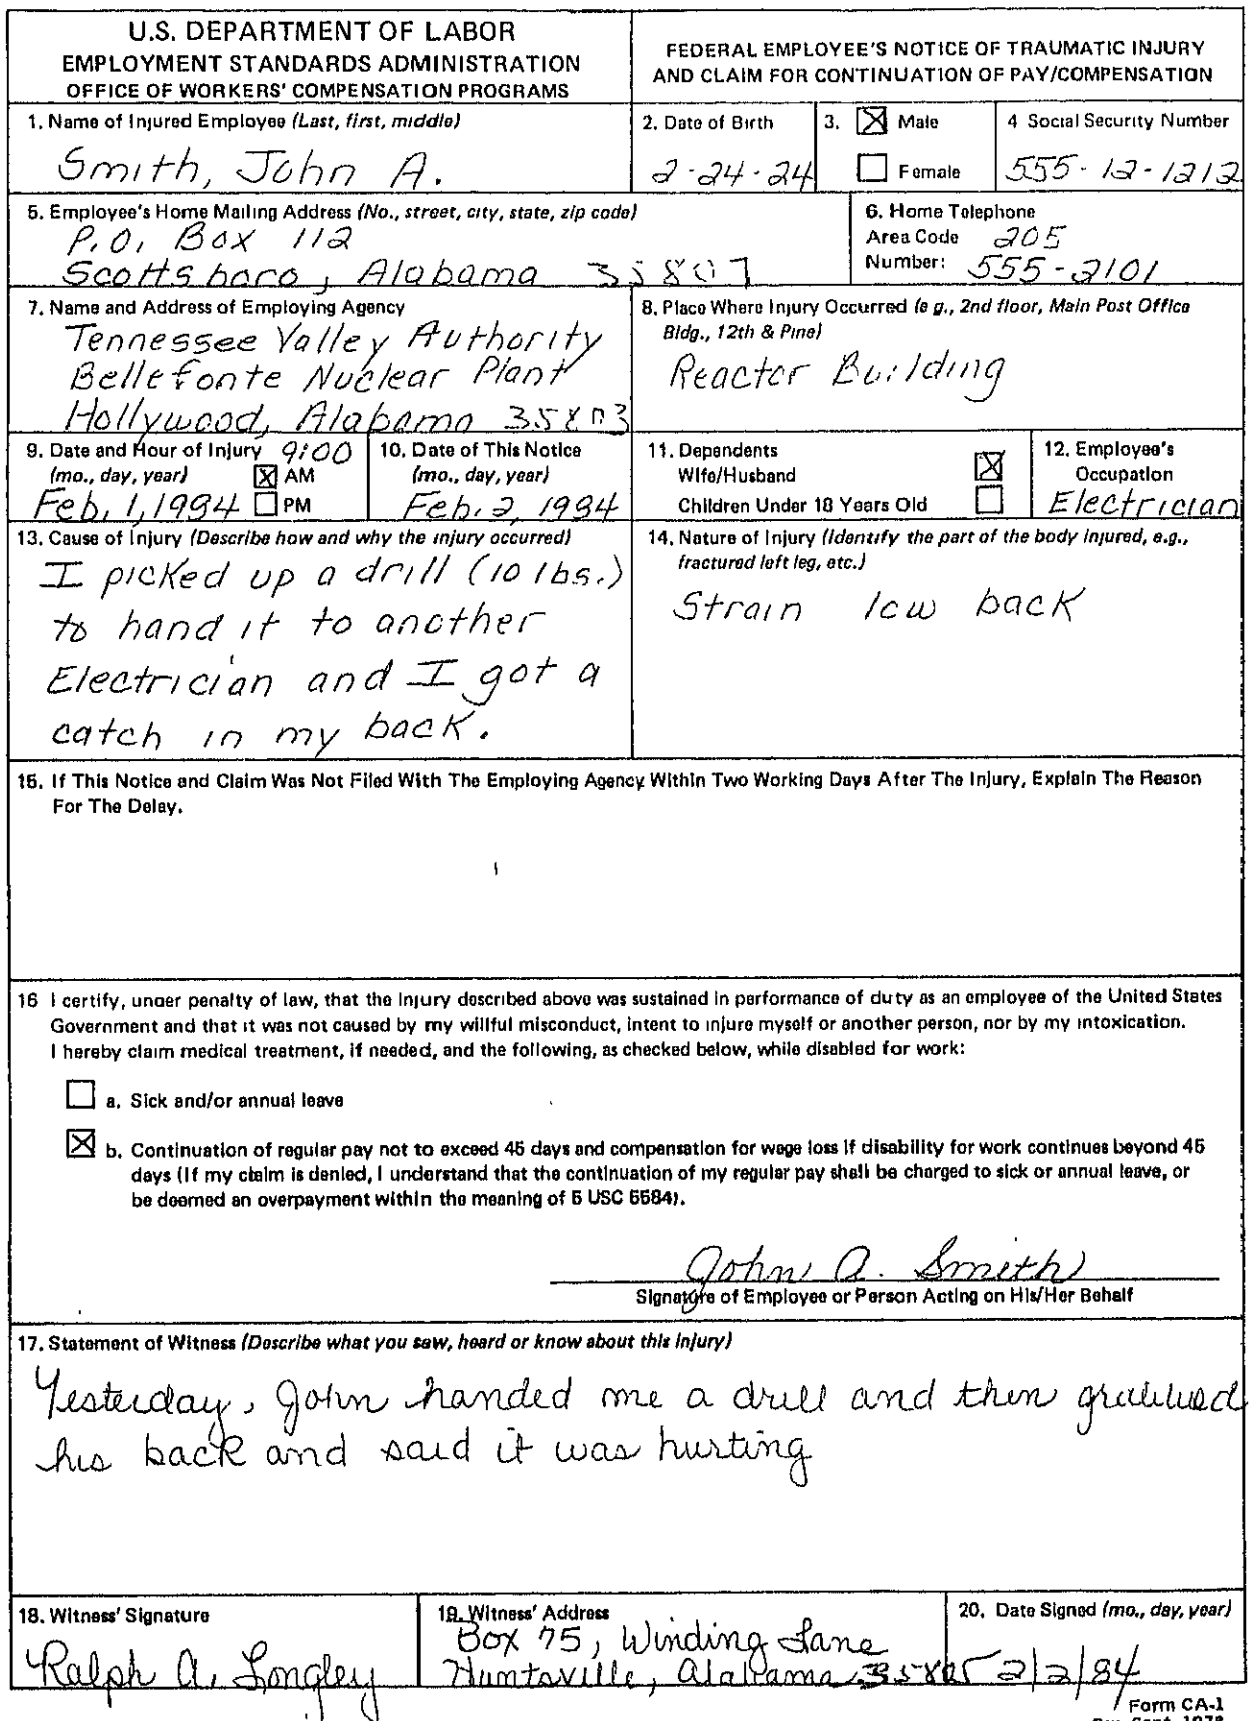 U.S. DEPARTMENT OF LABOR
EMPLOYMENT STANDARDS ADMINISTRATION
OFFICE OF WORKERS' COMPENSATION PROGRAMS
FEDERAL EMPLOYEE'S NOTICE OF TRAUMATIC INJURY
AND CLAIM FOR CONTINUATION OF PAY/COMPENSATION
1. Name of Injured Employee (Last, first, middle)
Smith, John A.
2. Date of Birth
2-24-24
3. Male
Female
4 Social Security Number
555-12-1212
5. Employee's Home Mailing Address (No., street, city, state, zip code)
P.O. Box 112
Scottsboro, Alabama 35807
6. Home Telephone
Area Code 205
Number: 555-2101
7. Name and Address of Employing Agency
Tennessee Valley Authority
Bellefonte Nuclear Plant
Hollywood, Alabama 35803
8. Place Where Injury Occurred (e g., 2nd floor, Main Post Office
Bldg., 12th & Pine)
Reactor Building
9. Date and Hour of Injury 9:00
(mo., day, year) AM
Feb. 1, 1984 PM
10. Date of This Notice
(mo., day, year)
Feb. 2, 1984
11. Dependents
Wife/Husband
Children Under 18 Years Old
12. Employee's
Occupation
Electrician
13. Cause of Injury (Describe how and why the injury occurred)
I picked up a drill (10 lbs.)
to hand it to another
Electrician and I got a
catch in my back.
14. Nature of Injury (Identify the part of the body injured, e.g.,
fractured left leg, etc.)
Strain low back
15. If This Notice and Claim Was Not Filed With The Employing Agency Within Two Working Days After The Injury, Explain The Reason
For The Delay.
16 I certify, under penalty of law, that the injury described above was sustained in performance of duty as an employee of the United States
Government and that it was not caused by my willful misconduct, intent to injure myself or another person, nor by my intoxication.
I hereby claim medical treatment, if needed, and the following, as checked below, while disabled for work:
a. Sick and/or annual leave
b. Continuation of regular pay not to exceed 45 days and compensation for wage loss if disability for work continues beyond 45
days (If my claim is denied, I understand that the continuation of my regular pay shall be charged to sick or annual leave, or
be deemed an overpayment within the meaning of 5 USC 5584).
John A. Smith
Signature of Employee or Person Acting on His/Her Behalf
17. Statement of Witness (Describe what you saw, heard or know about this injury)
Yesterday, John handed me a drill and then grabbed
his back and said it was hurting
18. Witness' Signature
Ralph A. Longley
19. Witness' Address
Box 75, Winding Lane
Huntsville, Alabama 35805
20. Date Signed (mo., day, year)
2/2/84
Form CA-1
Rev. Sept. 1978